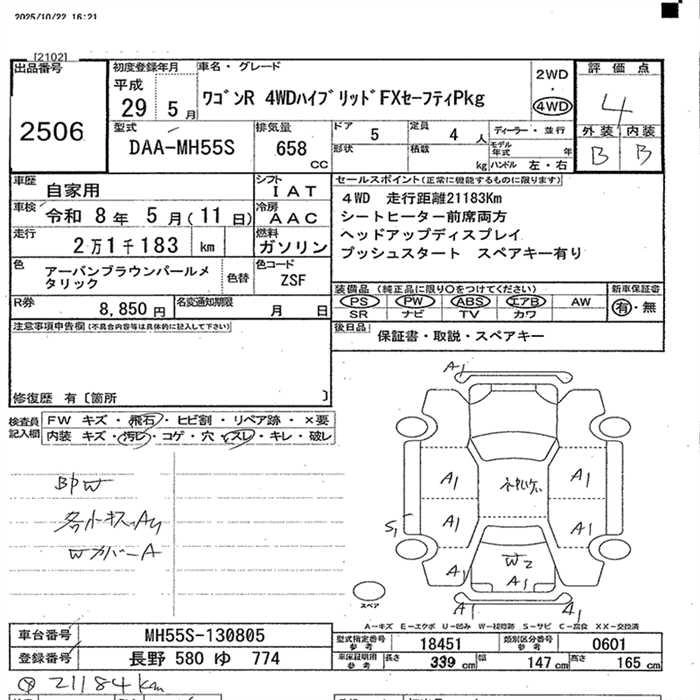 2025/10/22 16:21
[2102]
出品番号
2506
初度登録年月
平成
29 5月
車名・グレード
ワゴンR 4WDハイブリッドFXセーフティPkg
2WD
・
4WD
評価点
4
外装 内装
B B
型式
DAA-MH55S
排気量
658
CC
ドア 5
定員 4人
ディーラー・並行
形状
積載
kg
モデル年式 年
ハンドル 左・右
車歴
自家用
シフト
IAT
車検
令和 8年 5月(11日)
冷房
AAC
走行
2万1千183 km
燃料
ガソリン
色
アーバンブラウンパールメタリック
色替
色コード
ZSF
R券
8,850円
名変通知期限
月 日
セールスポイント(正常に機能するものに限ります)
4WD 走行距離21183Km
シートヒーター前席両方
ヘッドアップディスプレイ
プッシュスタート スペアキー有り
装備品(純正品に限り〇をつけてください)
新車保証書
PS PW ABS エアB AW
SR ナビ TV カワ
有・無
後日品
保証書・取説・スペアキー
注意事項申告欄(不具合内容等は具体的に記入して下さい)
修復歴 有〔箇所 〕
検査員記入欄
FW キズ・飛石・ヒビ割・リペア跡・×要
内装 キズ・汚レ・コゲ・穴・スレ・キレ・破レ
BPW
各小キズAU
WカバーA
A1
A1
A1
A1
A1
S1
A1
W2
A1
A1
スペア
A-キズ E-エクボ U-凹み W-補修跡 S-サビ C-腐食 XX-交換済
車台番号
MH55S-130805
登録番号
長野 580 ゆ 774
型式指定番号 参考
18451
類別区分番号 参考
0601
車庫証明用 参考
長さ 339cm
幅 147cm
高さ 165cm
21184km